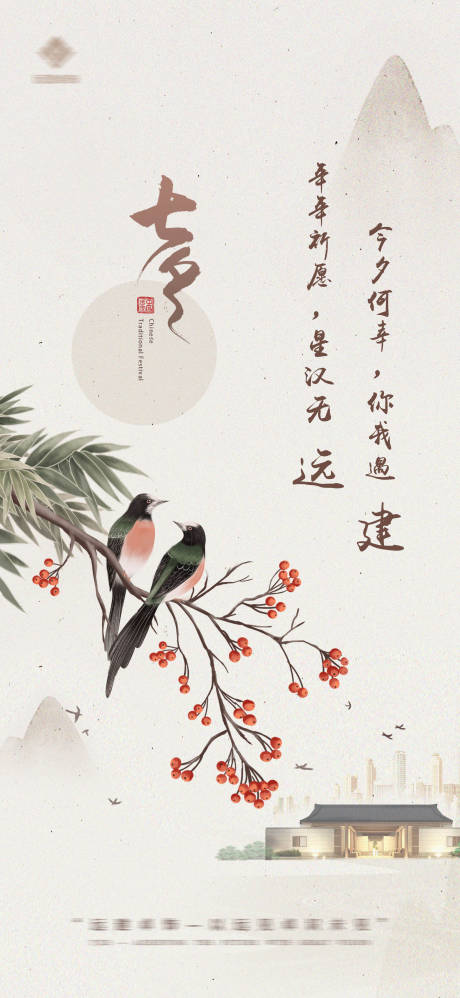 七夕
Chinese
Traditional Festival
今夕何幸，你我遇建
年年祈愿，星汉无远